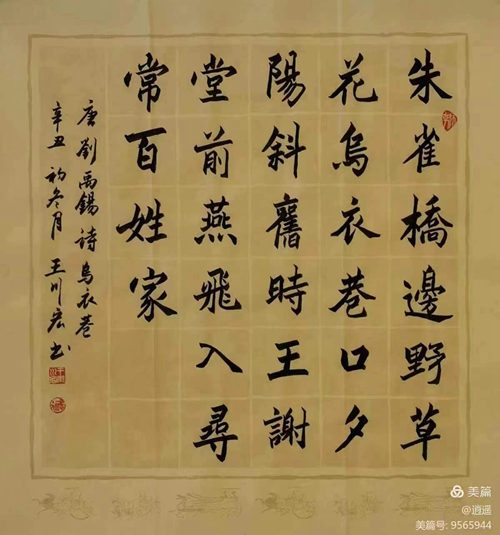 朱雀橋邊野草
花烏衣巷口夕
陽斜舊時王謝
堂前燕飛入尋
常百姓家
唐劉禹錫詩烏衣巷
辛丑初冬月王川宏书
美篇
@逍遥
美篇号: 9565944